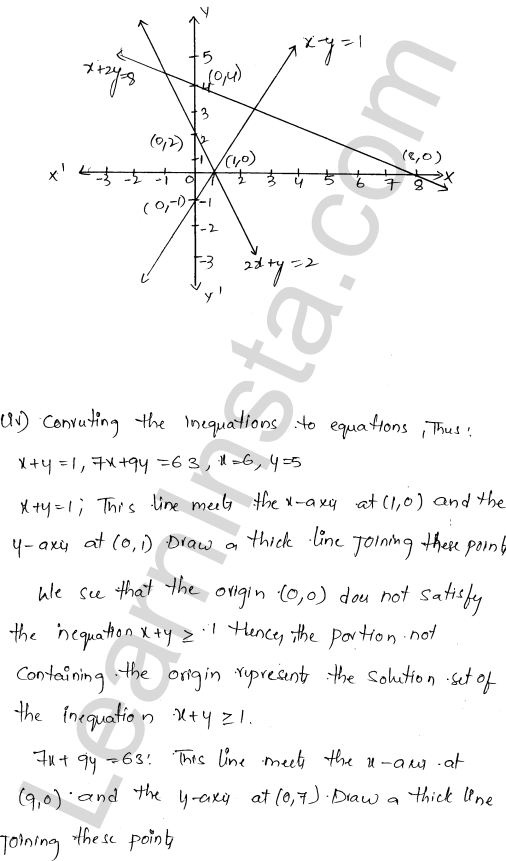 Y
x-y=1
x+2y=8
5
(0,4)
4
3
(0,2)
2
1
(1,0)
(8,0)
X'
-3 -2 -1 0 1 2 3 4 5 6 7 8
X
(0,-1)
-1
-2
-3
2x+y=2
Y'
(iv) Converting the inequations to equations, Thus:
x+y=1, 7x+9y=63, x=6, y=5
x+y=1; This line meets the x-axis at (1,0) and the
y-axis at (0,1) Draw a thick line joining these points
We see that the origin (0,0) does not satisfy
the inequation x+y ≥ 1 Hence, the portion not
containing the origin represents the solution set of
the inequation x+y ≥ 1.
7x+9y=63: This line meets the x-axis at
(9,0) and the y-axis at (0,7). Draw a thick line
joining these points
LearnInsta.com